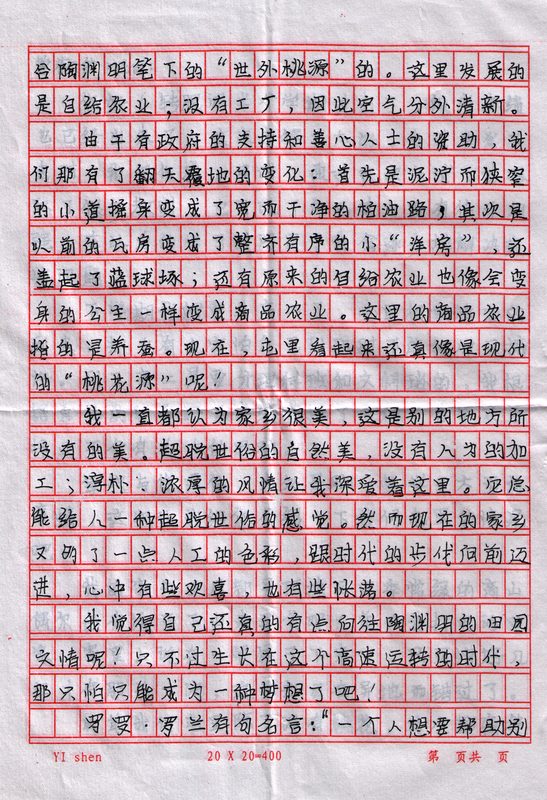 合陶渊明笔下的“世外桃源”的。这里发展的
是自给农业，没有工厂，因此空气分外清新。
由于有政府的支持和善心人士的资助，我
们那有了翻天覆地的变化：首先是泥泞而狭窄
的小道摇身变成了宽而干净的柏油路，其次是
以前的瓦房变成了整齐有序的小“洋房”，还
盖起了蓝球场；还有原来的自给农业也像会变
身的公主一样变成商品农业。这里的商品农业
指的是养蚕。现在，屯里看起来还真像是现代
的“桃花源”呢！
我一直都认为家乡很美，这是别的地方所
没有的美。超脱世俗的自然美，没有人为的加
工；淳朴、浓厚的风情让我深爱着这里。它总
能给人一种超脱世俗的感觉。然而现在的家乡
又的了一点人工的色彩，跟时代的步伐向前迈
进，心中有些欢喜，也有些怅落。
我觉得自己还真的有点向往陶渊明的田园
文情呢！只不过生长在这个高速运转的时代，
那只怕只能成为一种梦想了吧！
罗曼·罗兰有句名言：“一个人想要帮助别
YI shen
20 X 20=400
第 页共 页